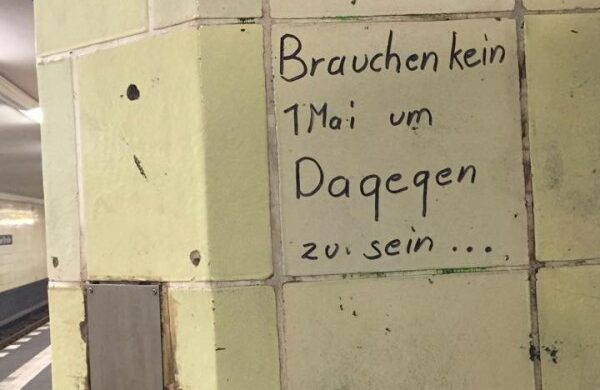 Brauchen kein
1 Mai um
Dagegen
zu sein ...